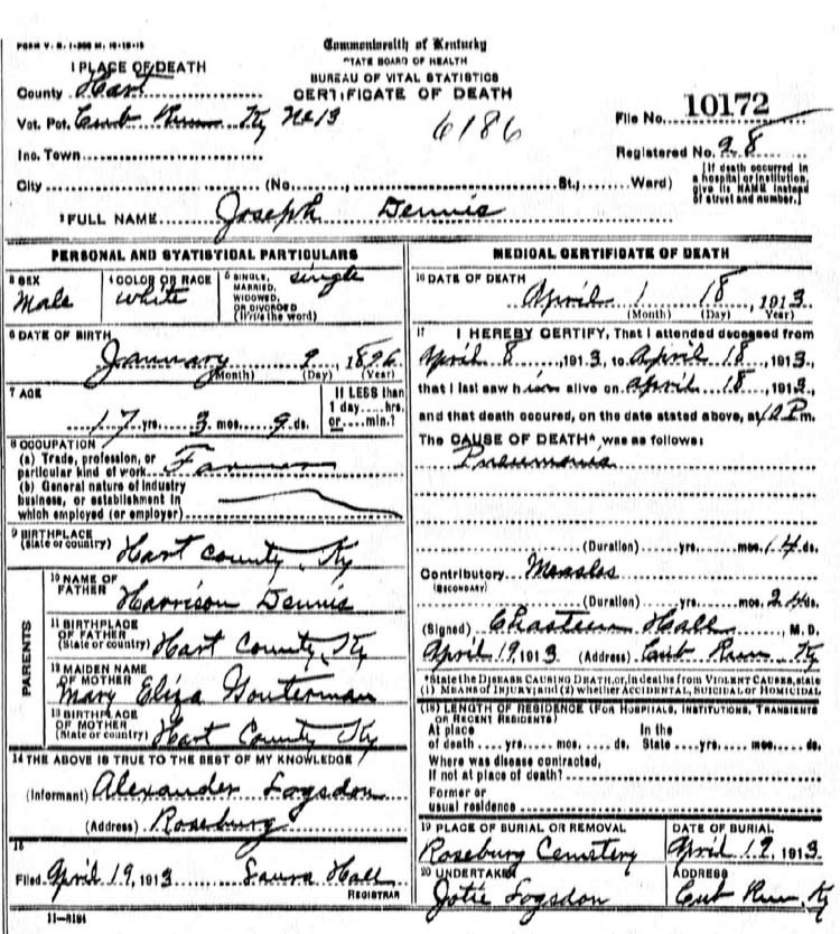 FORM V. S. 1-200 M. 10-19-18
Commonwealth of Kentucky
STATE BOARD OF HEALTH
BUREAU OF VITAL STATISTICS
CERTIFICATE OF DEATH
1 PLACE OF DEATH
County Hart
Vot. Pct. Cub Run Ky No 13
6186
File No. 10172
Inc. Town
Registered No. 28
City (No. , St.; Ward)
[If death occurred in
a hospital or institution,
give its NAME instead
of street and number.]
2 FULL NAME Joseph Dennis
PERSONAL AND STATISTICAL PARTICULARS
3 SEX
Male
4 COLOR OR RACE
white
5 SINGLE,
MARRIED,
WIDOWED,
OR DIVORCED
(Write the word)
single
6 DATE OF BIRTH
January 9, 1896
(Month) (Day) (Year)
7 AGE
17 yrs. 3 mos. 9 ds.
If LESS than
1 day.....hrs.
or.....min.?
8 OCCUPATION
(a) Trade, profession, or
particular kind of work Farmer
(b) General nature of industry
business, or establishment in
which employed (or employer)
9 BIRTHPLACE
(State or country) Hart County, Ky
PARENTS
10 NAME OF
FATHER
Harrison Dennis
11 BIRTHPLACE
OF FATHER
(State or country) Hart County, Ky
12 MAIDEN NAME
OF MOTHER
Mary Eliza Gouterman
13 BIRTHPLACE
OF MOTHER
(State or country) Hart County Ky
14 THE ABOVE IS TRUE TO THE BEST OF MY KNOWLEDGE
(Informant) Alexander Logsdon
(Address) Roseburg
15
Filed April 19, 1913 Laura Hall
REGISTRAR
11-8184
MEDICAL CERTIFICATE OF DEATH
16 DATE OF DEATH
April 18, 1913
(Month) (Day) Year)
17 I HEREBY CERTIFY, That I attended deceased from
April 8, 1913, to April 18, 1913,
that I last saw him alive on April 18, 1913,
and that death occured, on the date stated above, at 12 P m.
The CAUSE OF DEATH*, was as follows:
Pneumonia
(Duration) yrs. mos. 14 ds.
Contributory Measles
(SECONDARY)
(Duration) yrs. mos. 24 ds.
(Signed) Chasteen Hall, M. D.
April 19, 1913 (Address) Cub Run Ky
*State the DISEASE CAUSING DEATH, or, in deaths from VIOLENT CAUSES, state
(1) MEANS OF INJURY; and (2) whether ACCIDENTAL, SUICIDAL or HOMICIDAL
(18) LENGTH OF RESIDENCE (FOR HOSPITALS, INSTITUTIONS, TRANSIENTS
OR RECENT RESIDENTS)
At place In the
of death yrs. mos. ds. State yrs. mos. ds.
Where was disease contracted,
If not at place of death?
Former or
usual residence
19 PLACE OF BURIAL OR REMOVAL
Roseburg Cemetery
DATE OF BURIAL
April 19, 1913
20 UNDERTAKER
Jotie Logsdon
ADDRESS
Cub Run, Ky